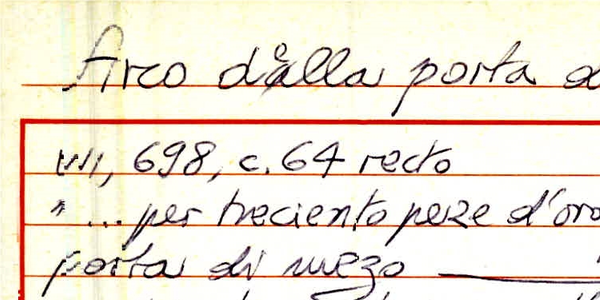 Arco dalla porta d
VII, 698, c. 64 recto
"... per treciento peze d'oro
porta di mezo